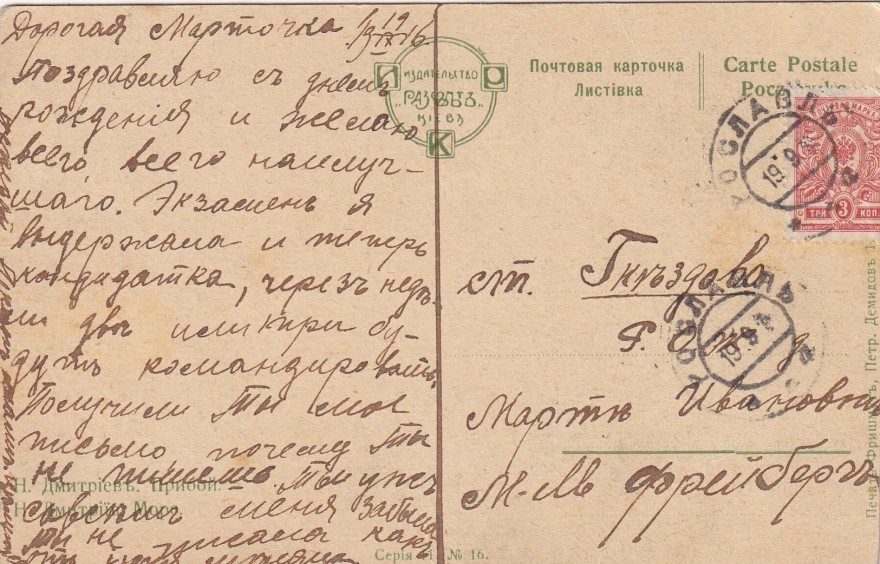 Дорогая Марточка
19 19/IX 16.
поздравляю съ днемъ
рождения и желаю
всего всего наилуч-
шаго. Экзаменъ я
выдержала и теперь
кандидатка, черезъ недѣ-
ли двѣ или три бу-
дутъ командировать.
Получили ты мое
письмо почему ты
не пишешь. Ты ужъ
совсѣмъ меня забыла
ты не писала какъ
ИЗДАТЕЛЬСТВО
КІЕВЪ
И
О
К
Почтовая карточка
Листівка
Carte Postale
РОСЛАВЛЬ
19.9.16
ТРИ 3 КОП.
ст. Гнѣздово
РОСЛАВЛЬ
19.9.16
Мартѣ Ивановнѣ
М-ль Фрейбергъ
Н. Дмитріевъ. Прибой.
Н. Дмитріїв. Море.
Серія № 16.
Печать Фришманъ, Петр. Демидовъ 1.